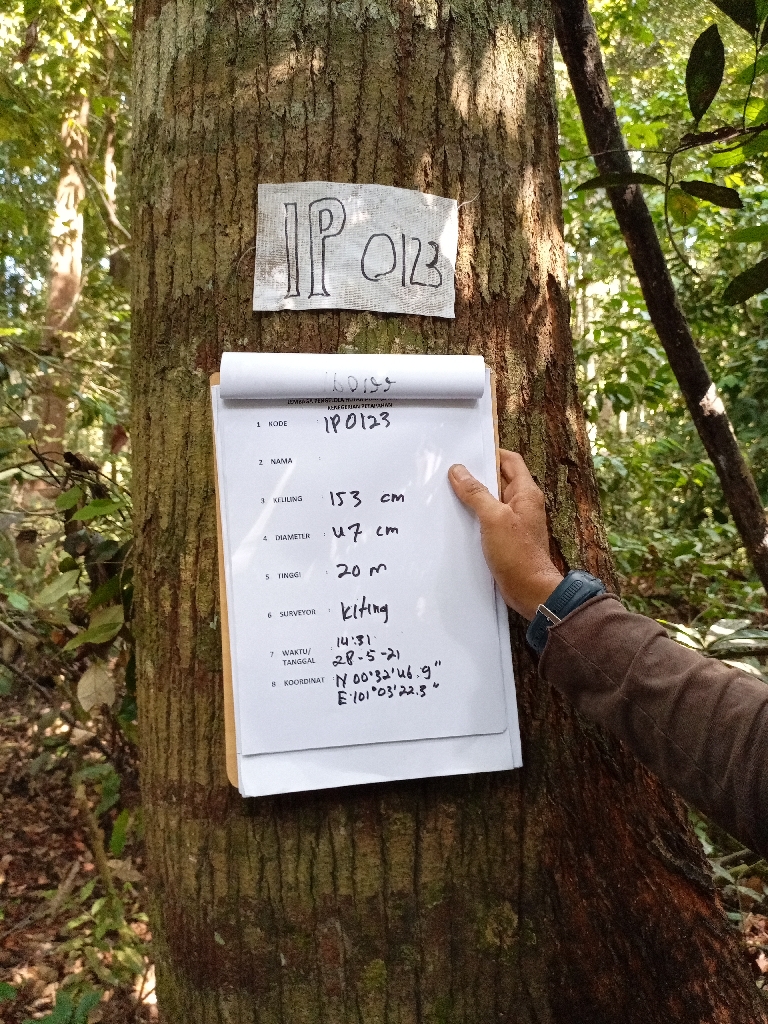 IP 0123
KENEGERIAN PETAPAHAN
1 KODE : IP0123
2 NAMA :
3 KELILING : 153 cm
4 DIAMETER : 47 cm
5 TINGGI : 20 m
6 SURVEYOR : Kiting
7 WAKTU/ TANGGAL : 14:31
28-5-21
8 KOORDINAT : N 00°32'46.9"
E:101°03'22.3"